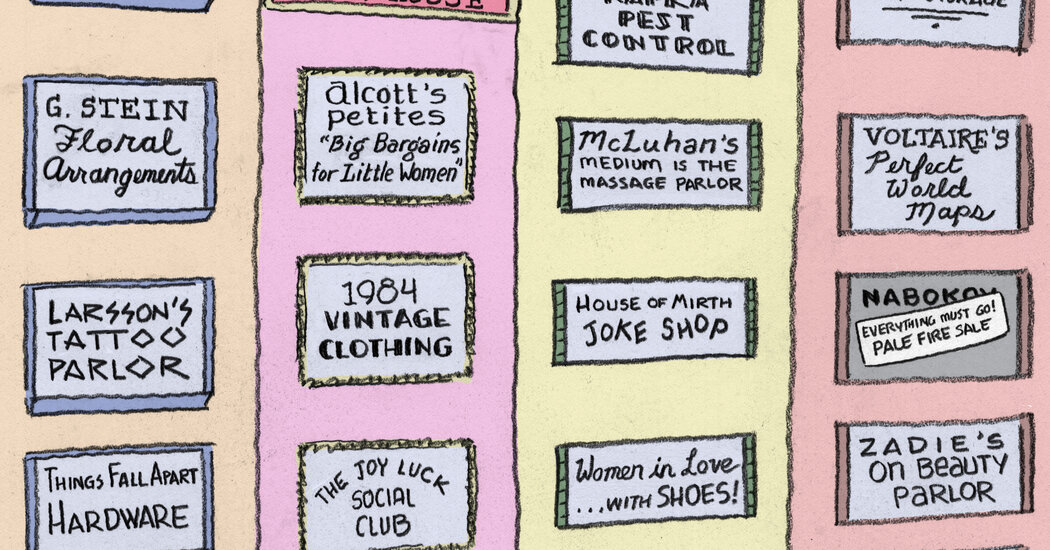 G. STEIN
Floral
Arrangements
LARSSON'S
TATTOO
PARLOR
THINGS FALL APART
HARDWARE
HOUSE
alcott's
petites
"Big Bargains
for Little Women"
1984
VINTAGE
CLOTHING
THE JOY LUCK
SOCIAL
CLUB
KAFKA
PEST
CONTROL
McLuhan's
MEDIUM IS THE
MASSAGE PARLOR
HOUSE OF MIRTH
JOKE SHOP
Women in Love
...WITH SHOES!
VOLTAIRE'S
Perfect
World
Maps
NABOKOV
EVERYTHING MUST GO!
PALE FIRE SALE
ZADIE'S
ON BEAUTY
PARLOR